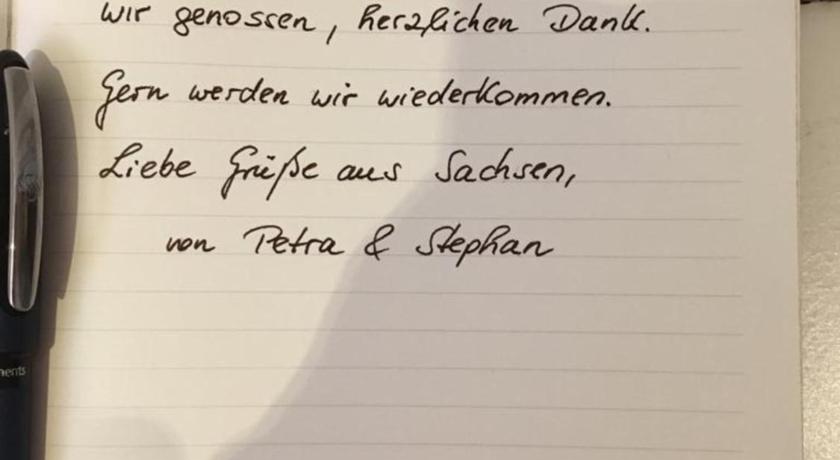 wir genossen, herzlichen Dank.
Gern werden wir wiederkommen.
Liebe Grüße aus Sachsen,
von Petra & Stephan
ments